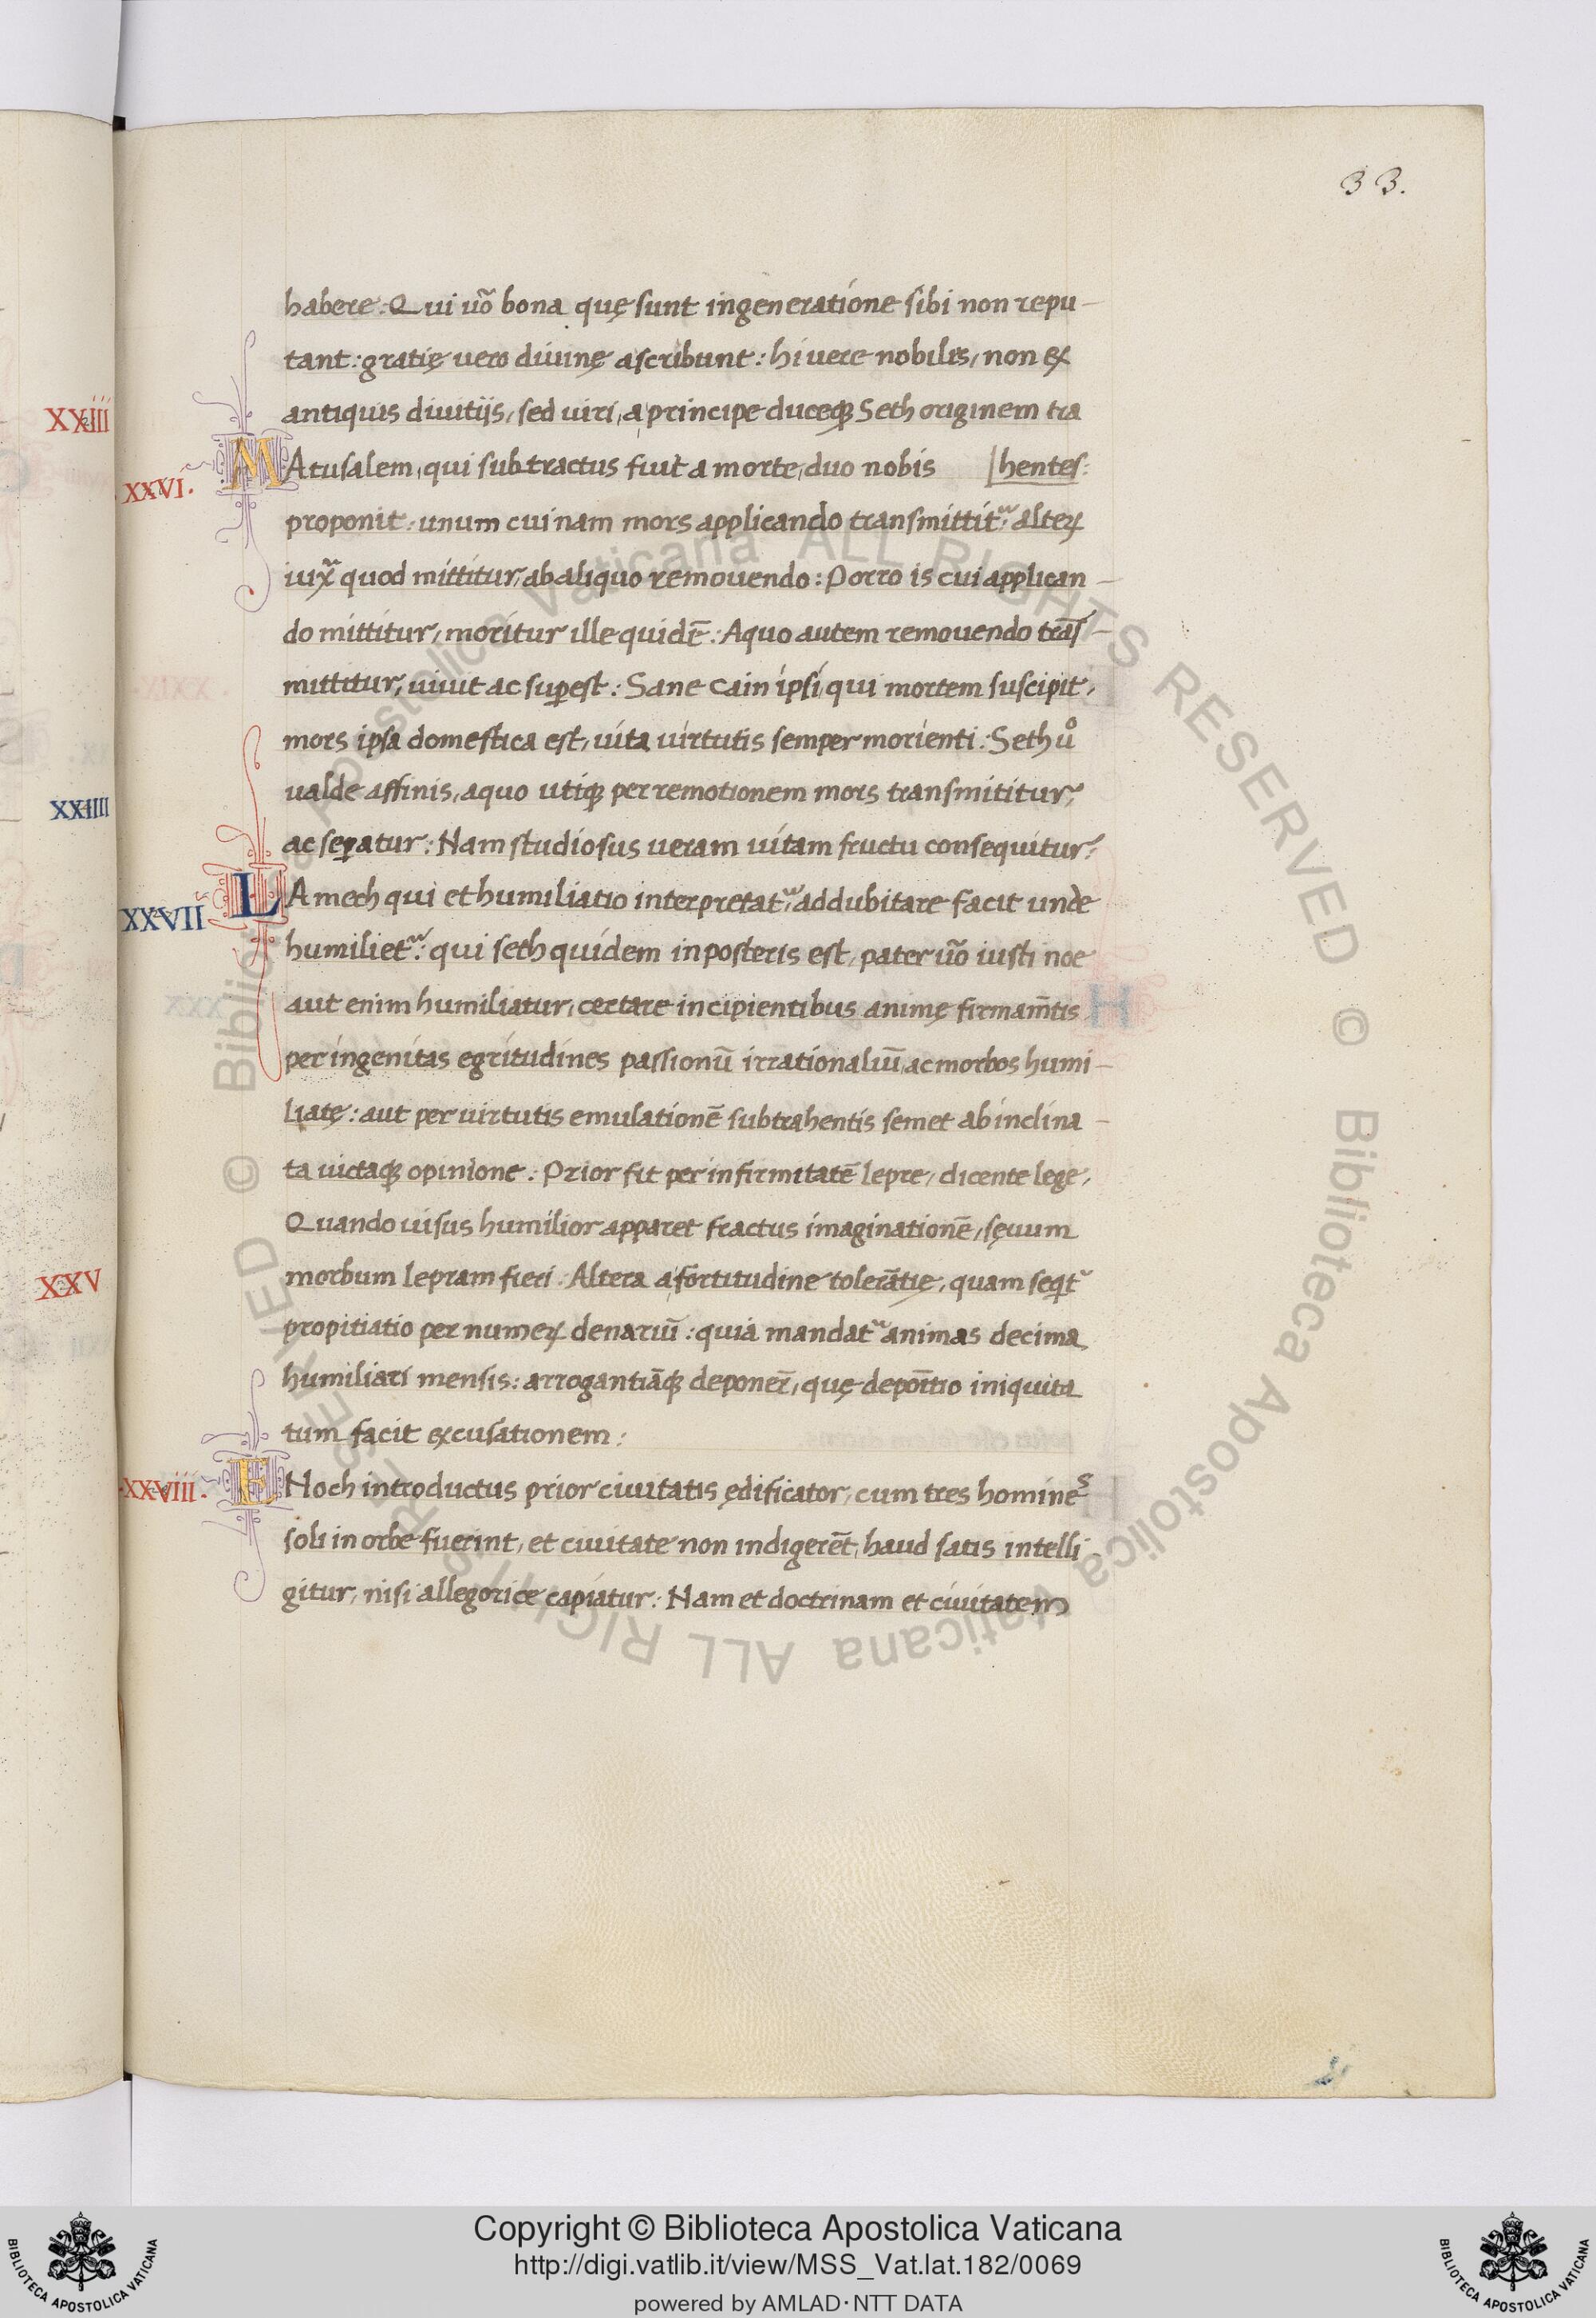 33.
habere. Qui uõ bona quę sunt in generatione sibi non repu-
tant: gratię vero diuinę ascribunt: hi vere nobiles, non ex
XXIII
antiquis diuitijs, sed uiri, a principe duceqꝫ Seth originem tra
hentes:
XXVI.
MAtusalem, qui subtractus fuit a morte, duo nobis
proponit: unum cuinam mors applicando transmittitᷣ: alteꝝ
iuxᷓ quod mittitur, ab aliquo remouendo: Porro is cui applican-
do mittitur, moritur ille quidē: A quo autem remouendo trãs-
mittitur, uiuit ac suꝑest: Sane Cain ipsi, qui mortem suscipit,
mors ipsa domestica est, uita uirtutis semper morienti: Seth uͦ
ualde affinis, a quo utiqꝫ per remotionem mors transmititur,
XXIIII
ac seꝑatur: Nam studiosus ueram uitam fructu consequitur:
XXVII
LAmech qui et humiliatio interpretatᷣ, addubitare facit unde
humilietᷣ: qui seth quidem in posteris est, pater uõ iusti noe
aut enim humiliatur, certare incipientibus animę firmam̃tis
per ingenitas egritudines passionū irrationaliū, ac morbos humi-
liatę: aut per uirtutis emulationē subtrahentis semet ab inclina-
ta uictaqꝫ opinione: Prior fit per infirmitatē lepre, dicente lege,
Quando uisus humilior apparet fractus imaginationē, sęuum
XXV
morbum lepram fieri. Altera a fortitudine tolerãtię, quam seqͥtᷣ
propitiatio per numeꝝ denariū: quia mandatᷣ animas decima
humiliari mensis: arrogantiãqꝫ deponer̃, quę depoĩtio iniquita
tum facit excusationem:
XXVIII.
ENoch introductus prior ciuitatis ędificator, cum tres homines
soli in orbe fuerint, et ciuitate non indigerēt, haud satis intelli
gitur, nisi allegorice capiatur: Nam et doctrinam et ciuitatem
© Biblioteca Apostolica Vaticana ALL RIGHTS RESERVED © Biblioteca Apostolica Vaticana ALL RIGHTS RESERVED
BIBLIOTECA APOSTOLICA VATICANA
Copyright © Biblioteca Apostolica Vaticana
http://digi.vatlib.it/view/MSS_Vat.lat.182/0069
powered by AMLAD·NTT DATA
BIBLIOTECA APOSTOLICA VATICANA